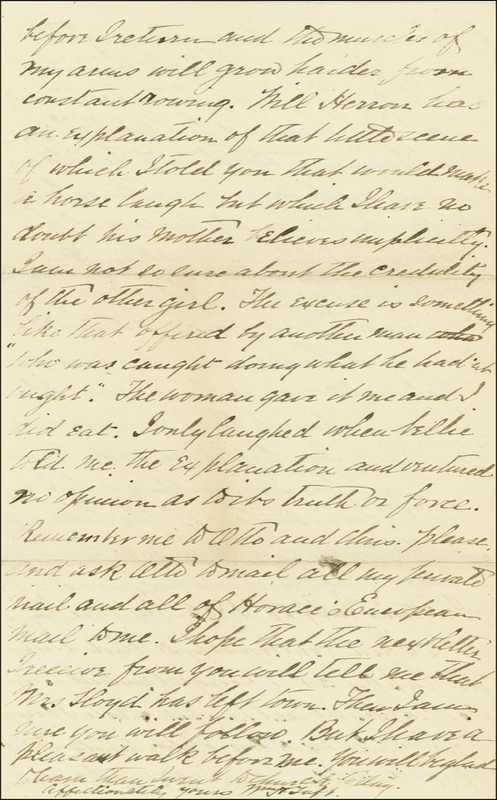 before I return and the muscles of
my arms will grow harder from
constant rowing. Will Herron has
an explanation of that little scene
of which I told you that would make
a horse laugh but which I have no
doubt his mother believes implicitly.
I am not so sure about the credulity
of the other girl. The excuse is something
like that offered by another man who
"who was caught doing what he had'nt
ought". The woman gave it me and I
did eat. I only laughed when Nellie
told me the explanation and ventured
no opinion as to its truth or force.
Remember me to Otto and Chris. please.
and ask Otto to mail all my private
mail and all of Horace's European
mail to me. I hope that the next letter
I receive from you will tell me that
Mrs Lloyd has left town. Then I am
sure you will follow. But I have a
pleasant walk before me. You will be glad
to learn than I went to church today.
Affectionately yours Wm H Taft.